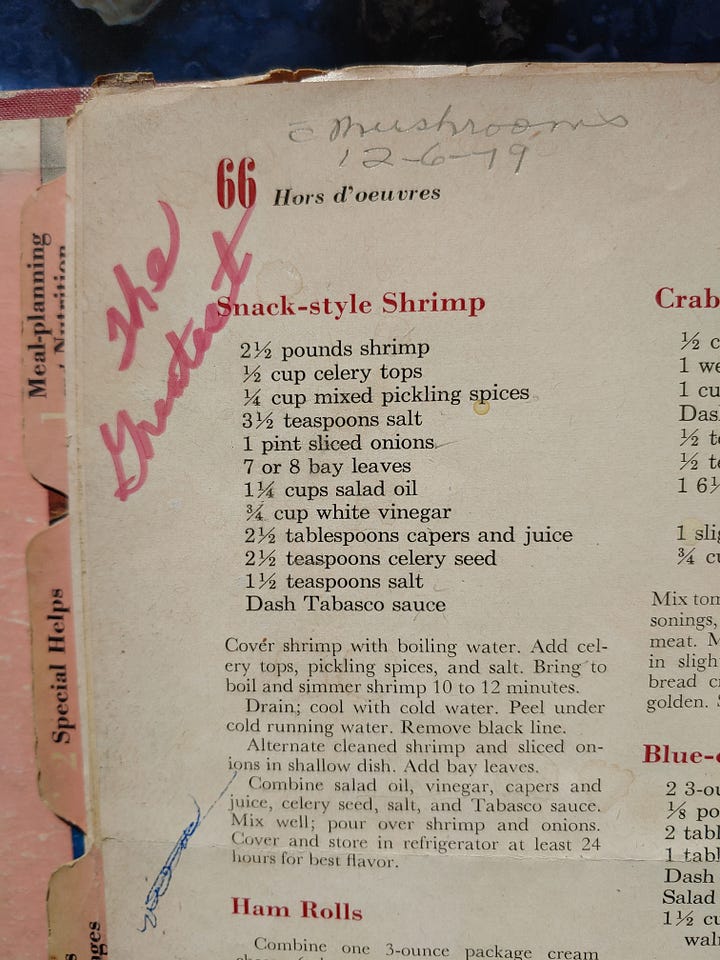 Mushrooms
12-6-79
66 Hors d'oeuvres
The
Greatest
Meal-planning
Nutrition
1
Special Helps
2
Snack-style Shrimp
2½ pounds shrimp
½ cup celery tops
¼ cup mixed pickling spices
3½ teaspoons salt
1 pint sliced onions
7 or 8 bay leaves
1¼ cups salad oil
¾ cup white vinegar
2½ tablespoons capers and juice
2½ teaspoons celery seed
1½ teaspoons salt
Dash Tabasco sauce
Cover shrimp with boiling water. Add cel-
ery tops, pickling spices, and salt. Bring to
boil and simmer shrimp 10 to 12 minutes.
Drain; cool with cold water. Peel under
cold running water. Remove black line.
Alternate cleaned shrimp and sliced on-
ions in shallow dish. Add bay leaves.
Combine salad oil, vinegar, capers and
juice, celery seed, salt, and Tabasco sauce.
Mix well; pour over shrimp and onions.
Cover and store in refrigerator at least 24
hours for best flavor.
Ham Rolls
Combine one 3-ounce package cream
Crab
½ c
1 we
1 cu
Das
½ te
½ te
1 6½
1 slig
¾ cu
Mix tom
sonings,
meat. M
in sligh
bread c
golden. S
Blue-c
2 3-ou
⅛ po
2 tabl
1 tabl
Dash
Salad
1½ cu
waln